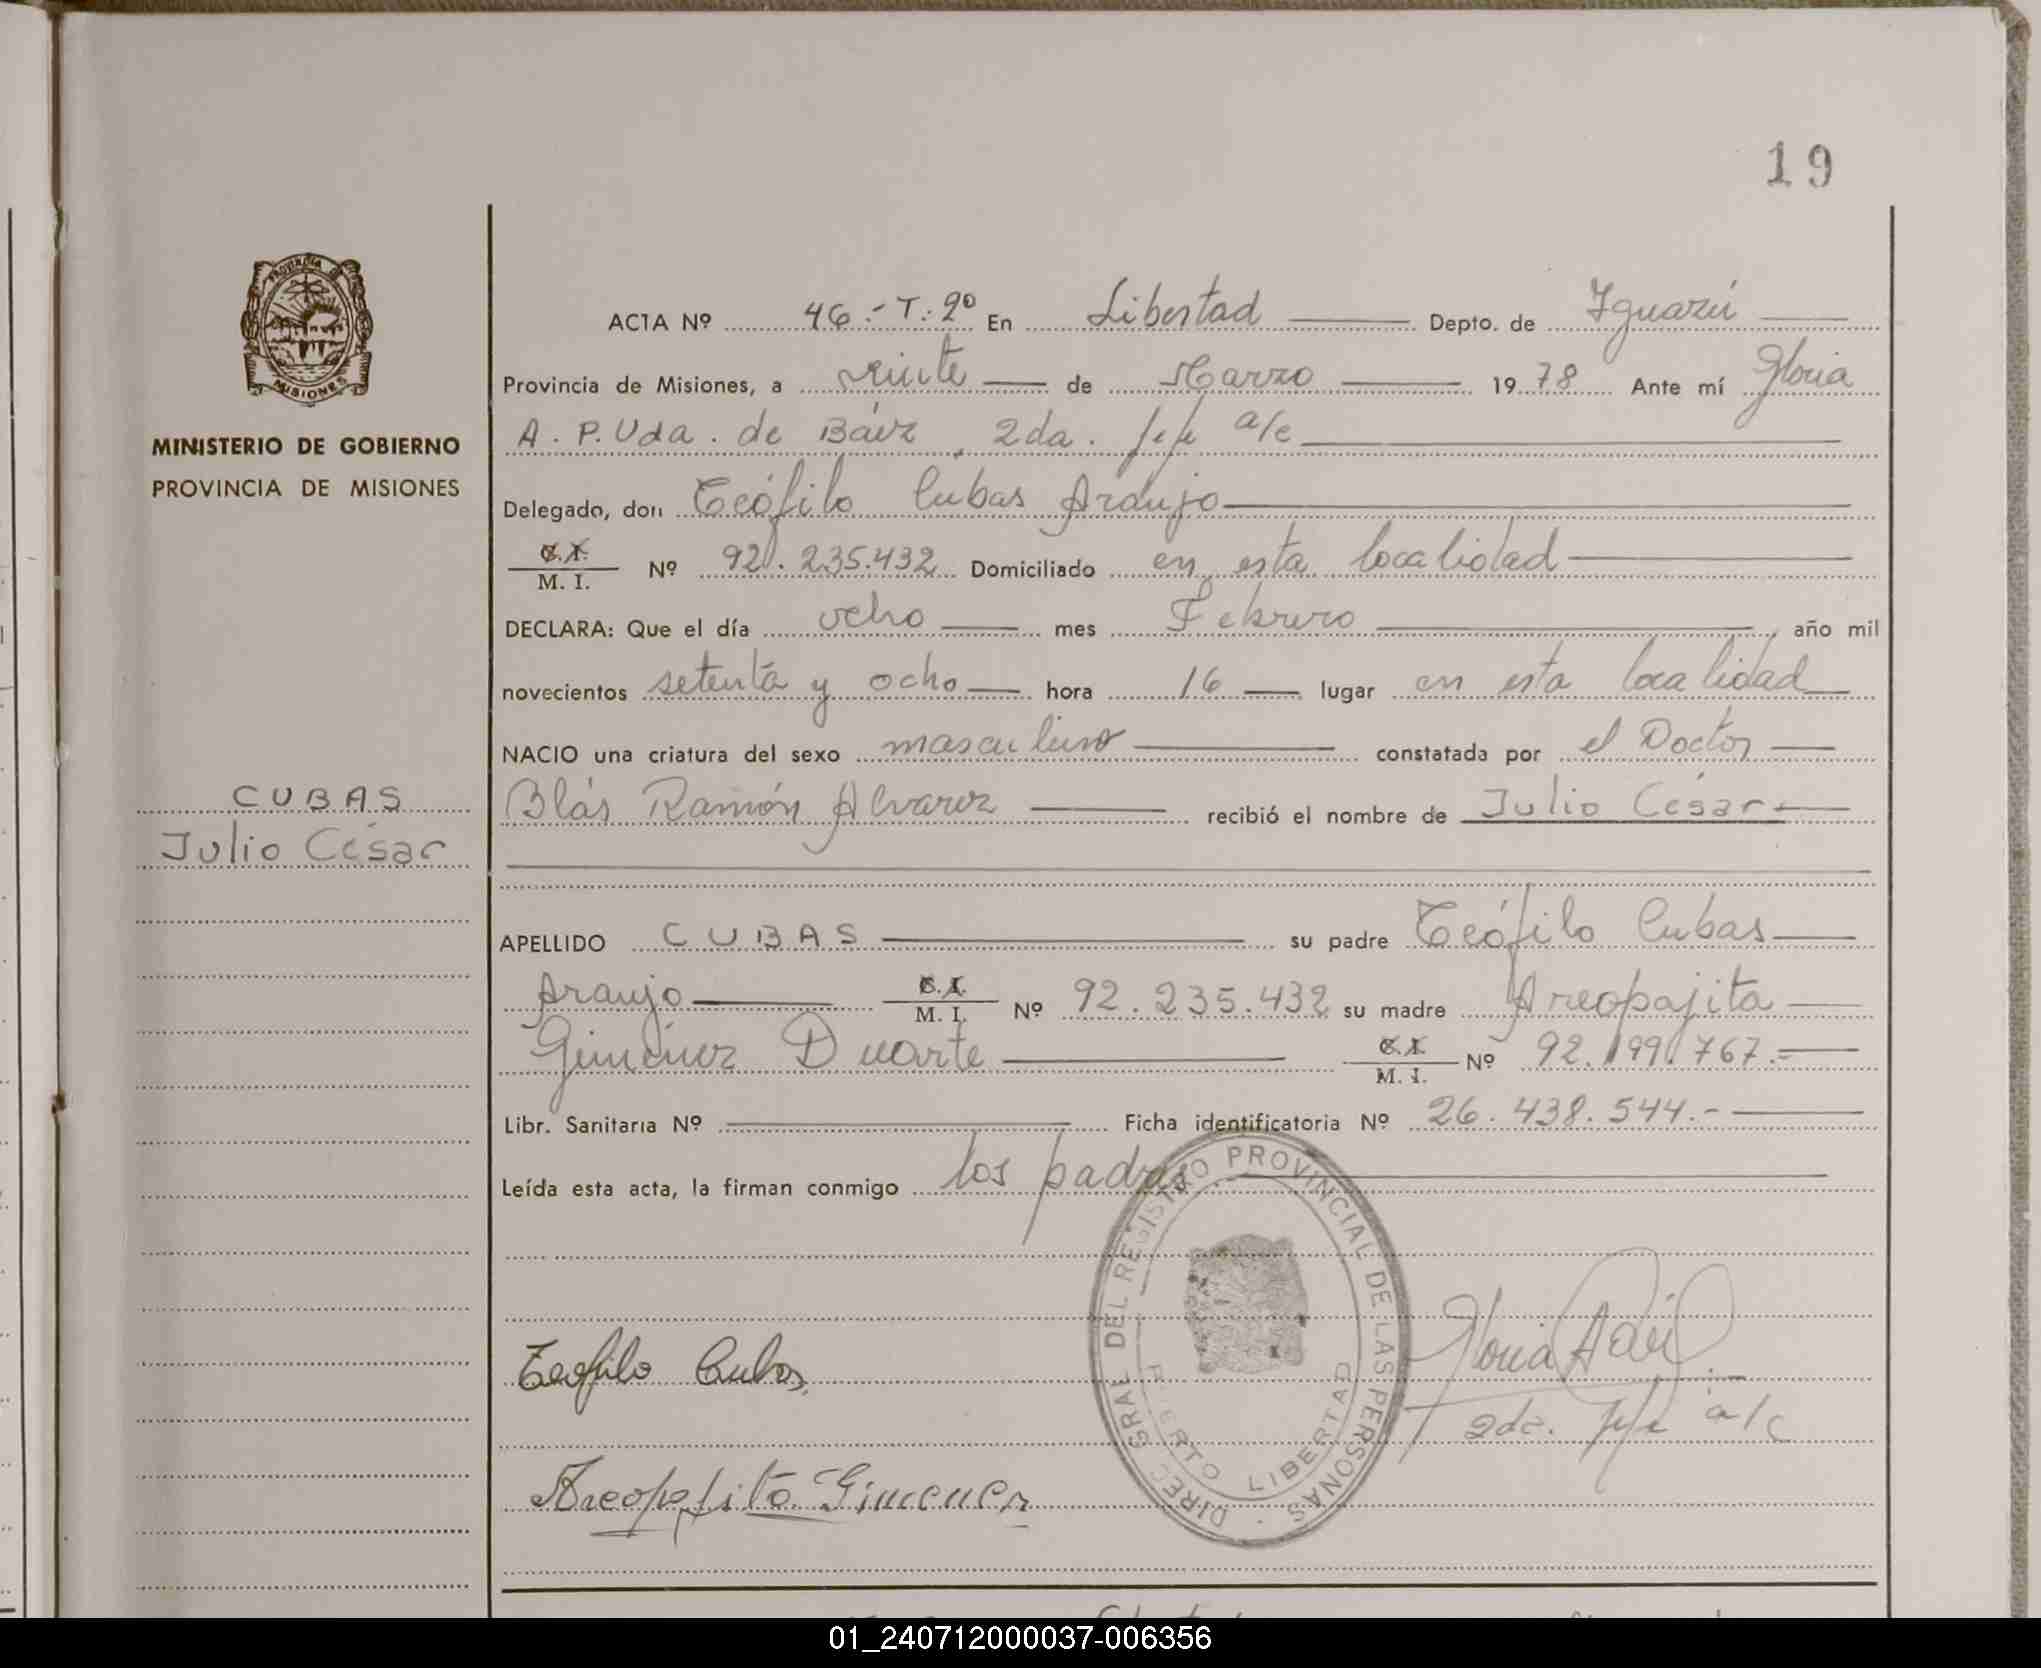 19
PROVINCIA DE
MISIONES
MINISTERIO DE GOBIERNO
PROVINCIA DE MISIONES
CUBAS
Julio César
ACTA Nº 46.- T: 2º En Libertad Depto. de Iguazú
Provincia de Misiones, a veinte de Marzo 1978 Ante mí Gloria
A. P. Vda. de Báez 2da. Jefe a/c
Delegado, don Teófilo Cubas Araujo
C.I. M. I. Nº 92.235.432 Domiciliado en esta localidad
DECLARA: Que el día ocho mes Febrero, año mil
novecientos setenta y ocho hora 16 lugar en esta localidad
NACIO una criatura del sexo masculino constatada por el Doctor
Blás Ramón Alvarez recibió el nombre de Julio César
APELLIDO CUBAS su padre Teófilo Cubas
Araujo C.I. M. I. Nº 92.235.432 su madre Areopajita
Giménez Duarte C.I. M. I. Nº 92.199.767.-
Libr. Sanitaria Nº Ficha identificatoria Nº 26.438.544.-
Leída esta acta, la firman conmigo los padres
DIREC GRAL DEL REGISTRO PROVINCIAL DE LAS PERSONAS
PUERTO LIBERTAD
Teofilo Cubas
Gloria A de
2da. Jefe a/c
Areopajita Gimenez
01_240712000037-006356